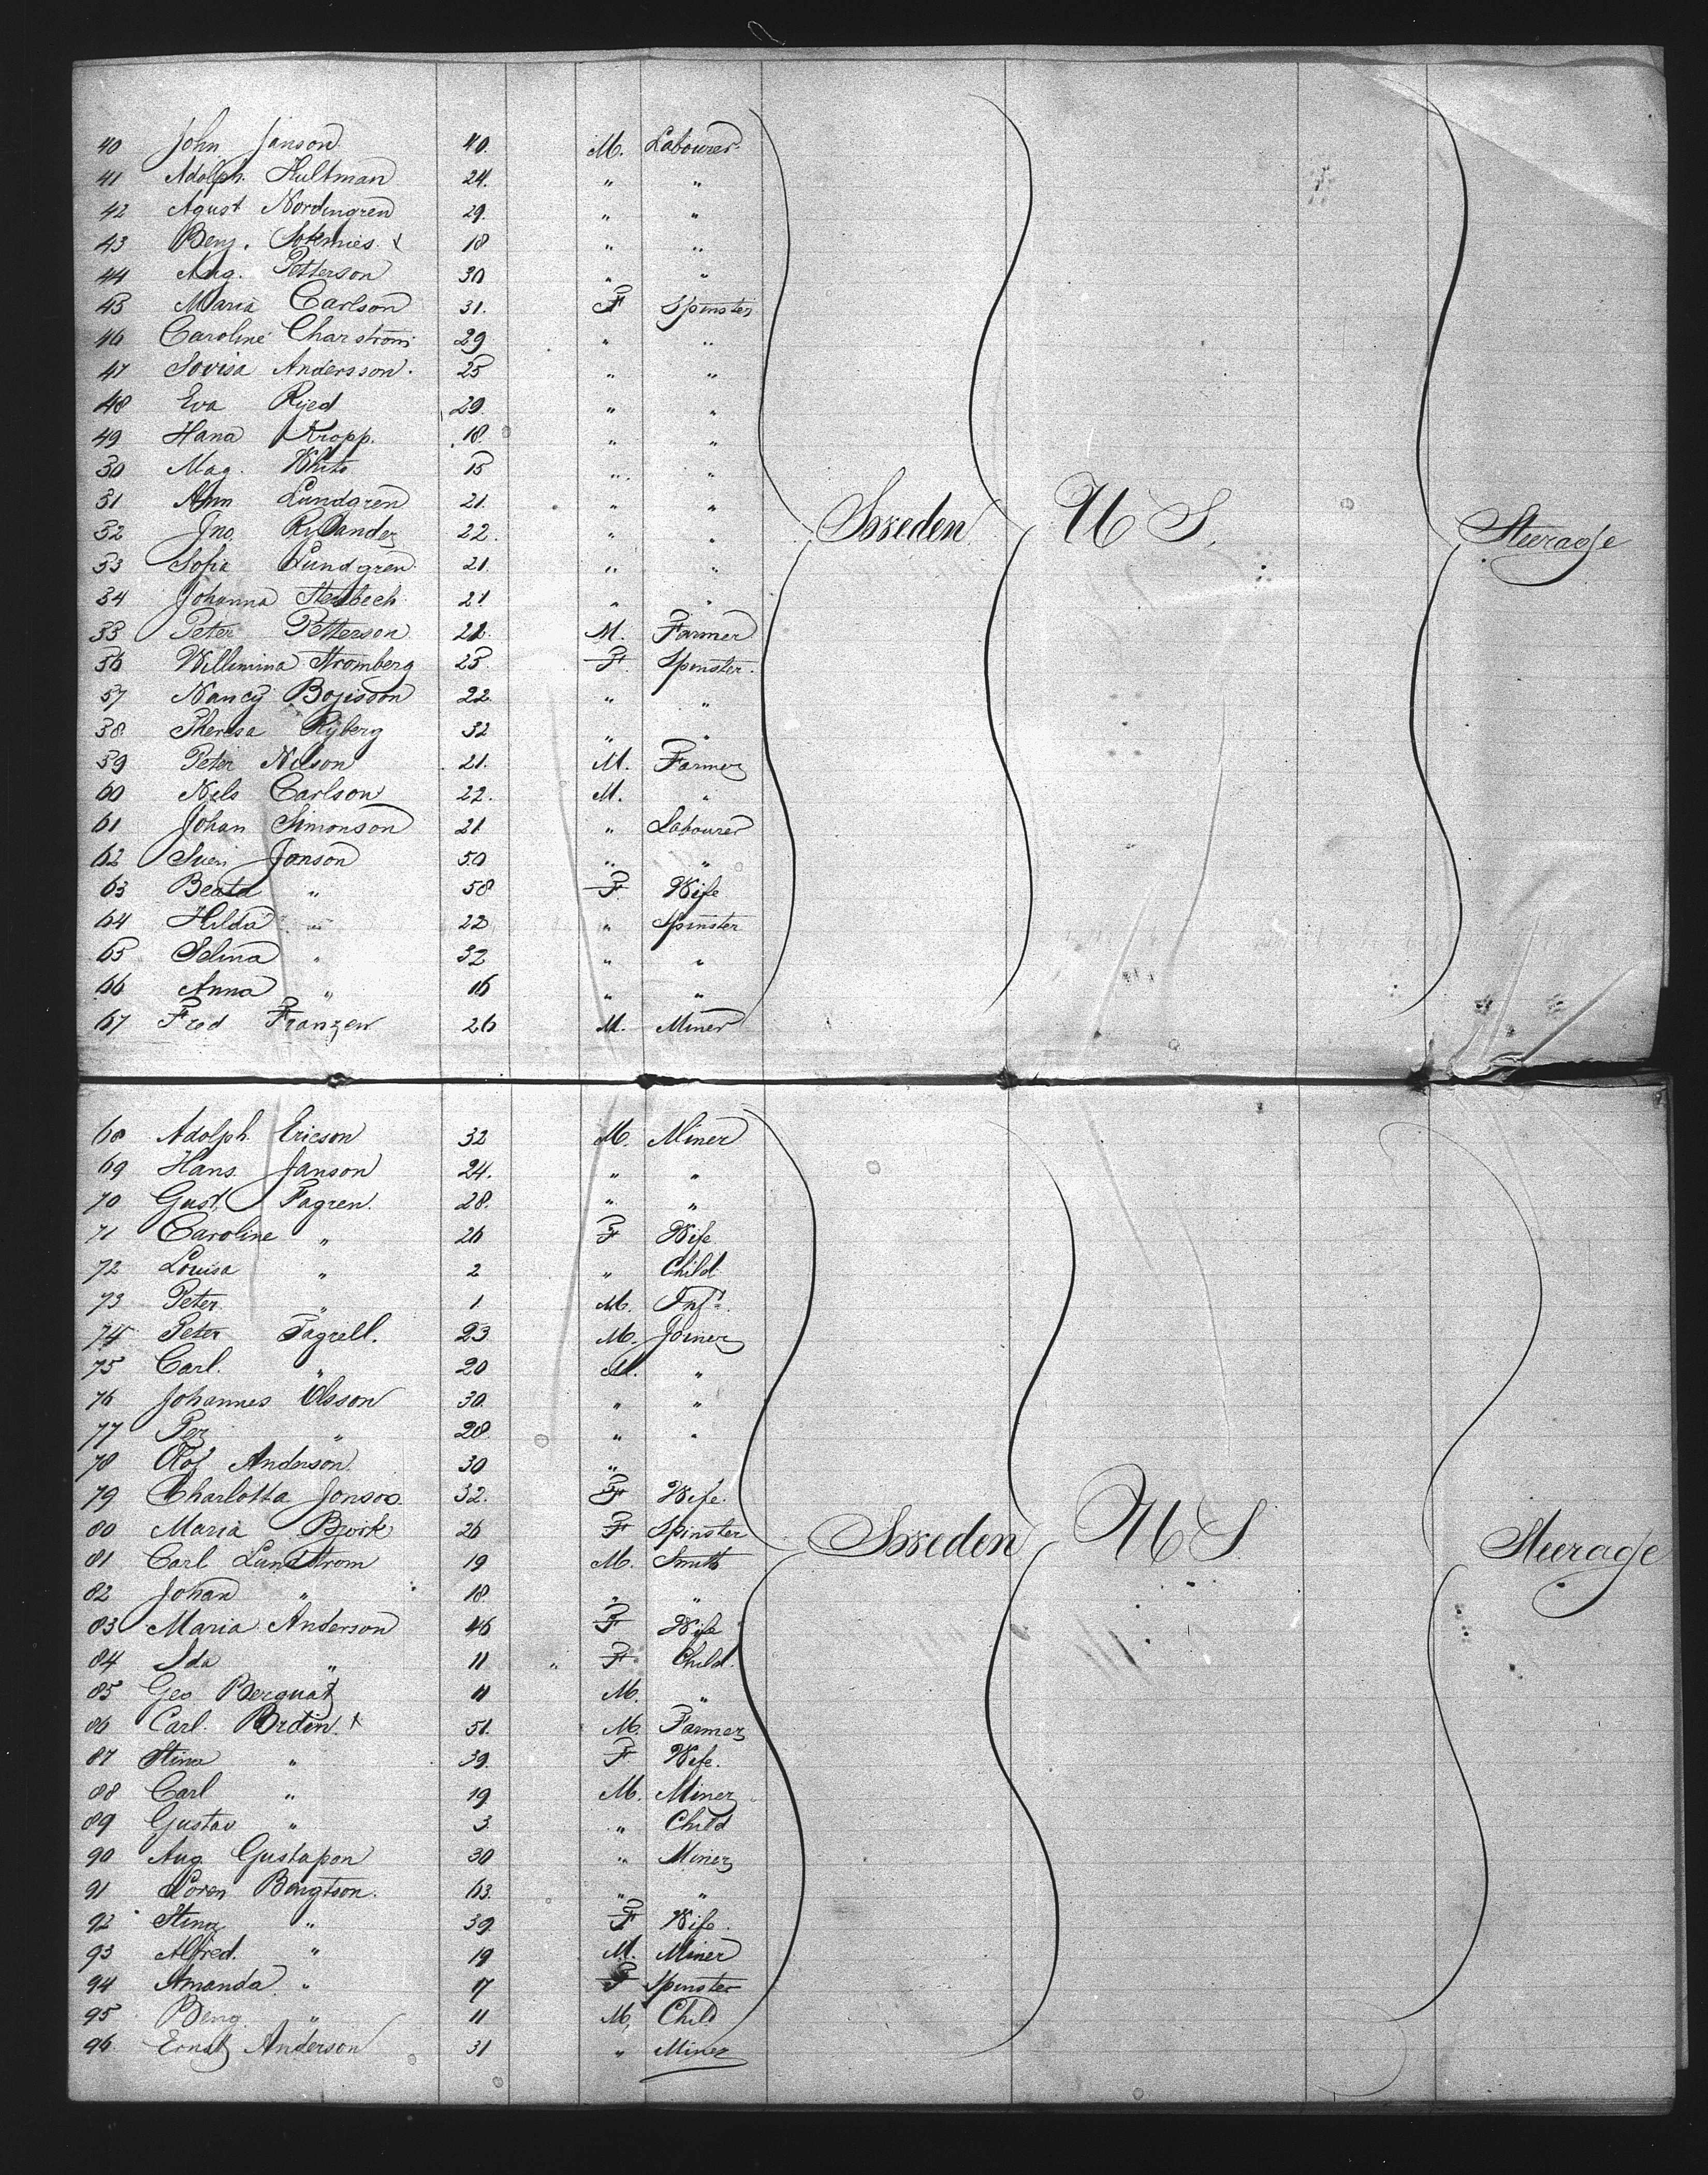 40 John Janson 40. M. Labourer
41 Adolph. Hultman 24. " "
42 Agust Nordingren 29. " "
43 Benj. x 18 " "
44 Aug. Petterson 30 " "
45 Maria Carlson 31. F Spinster
46 Caroline Charstrom 29 " "
47 Lovisa Andersson. 25 " "
48 Eva Rijed 29. " "
49 Hana Kropp. 18. " "
50 Mag. White 15 " "
51 Ann Lundgren 21. " "
52 Jno. Rylander 22. " "
Sweden U S. Steerage
53 Sofia Lundgren 21. " "
54 Johanna Stenbech 21 " "
55 Peter Petterson 22. M. Farmer
56 Willimina Stromberg 25. F. Spinster.
57 Nancy Bojisson 22. " "
58. Theresa Ryberg 32 " "
59 Peter Nelson 21. M. Farmer
60 Nels Carlson 22. M. "
61 Johan Simonson 21 " Labourer
62 Sven Jonson 50 " "
63 Beata " 58 F. Wife
64 Hilda " 22 " Spinster
65 Selina " 32 " "
66 Anna " 16 " "
67 Fred Franzen 26 M. Miner
68 Adolph. Ericson 32 M. Miner
69 Hans. Janson 24. " "
70 Gust. Fagren. 28. " "
71 Caroline " 26 F Wife
72 Louisa " 2 " Child
73 Peter " 1 M. Inft.
74 Peter Fagrell. 23 M. Joiner
75 Carl. " 20 M. "
76 Johannes Olsson 30. " "
77 Per " 28. " "
78 Olof Anderson. 30 "
79 Charlotta Jonson 32. F Wife.
80 Maria Bjork 26 F Spinster
Sweden U S. Steerage
81 Carl Lundstrom 19 M. Smith
82 Johan " 18. " "
83 Maria Anderson 46 F Wife
84 Ida " 11 " F. Child.
85 Geo Berquat 11 M. "
86 Carl. Brdin. x 51. M. Farmer
87 Stina " 39. F Wife.
88 Carl " 19 M. Miner
89 Gustav " 3 " Child
90 Aug. Gustafson 30 " Miner
91 Soren Bengtson. 63. " "
92 Stina " 39. F Wife.
93 Alfred. " 19 M. Miner
94 Amanda. " 17 F Spinster
95 Beng. " 11 M, Child
96. Ernst Anderson 31 " Miner